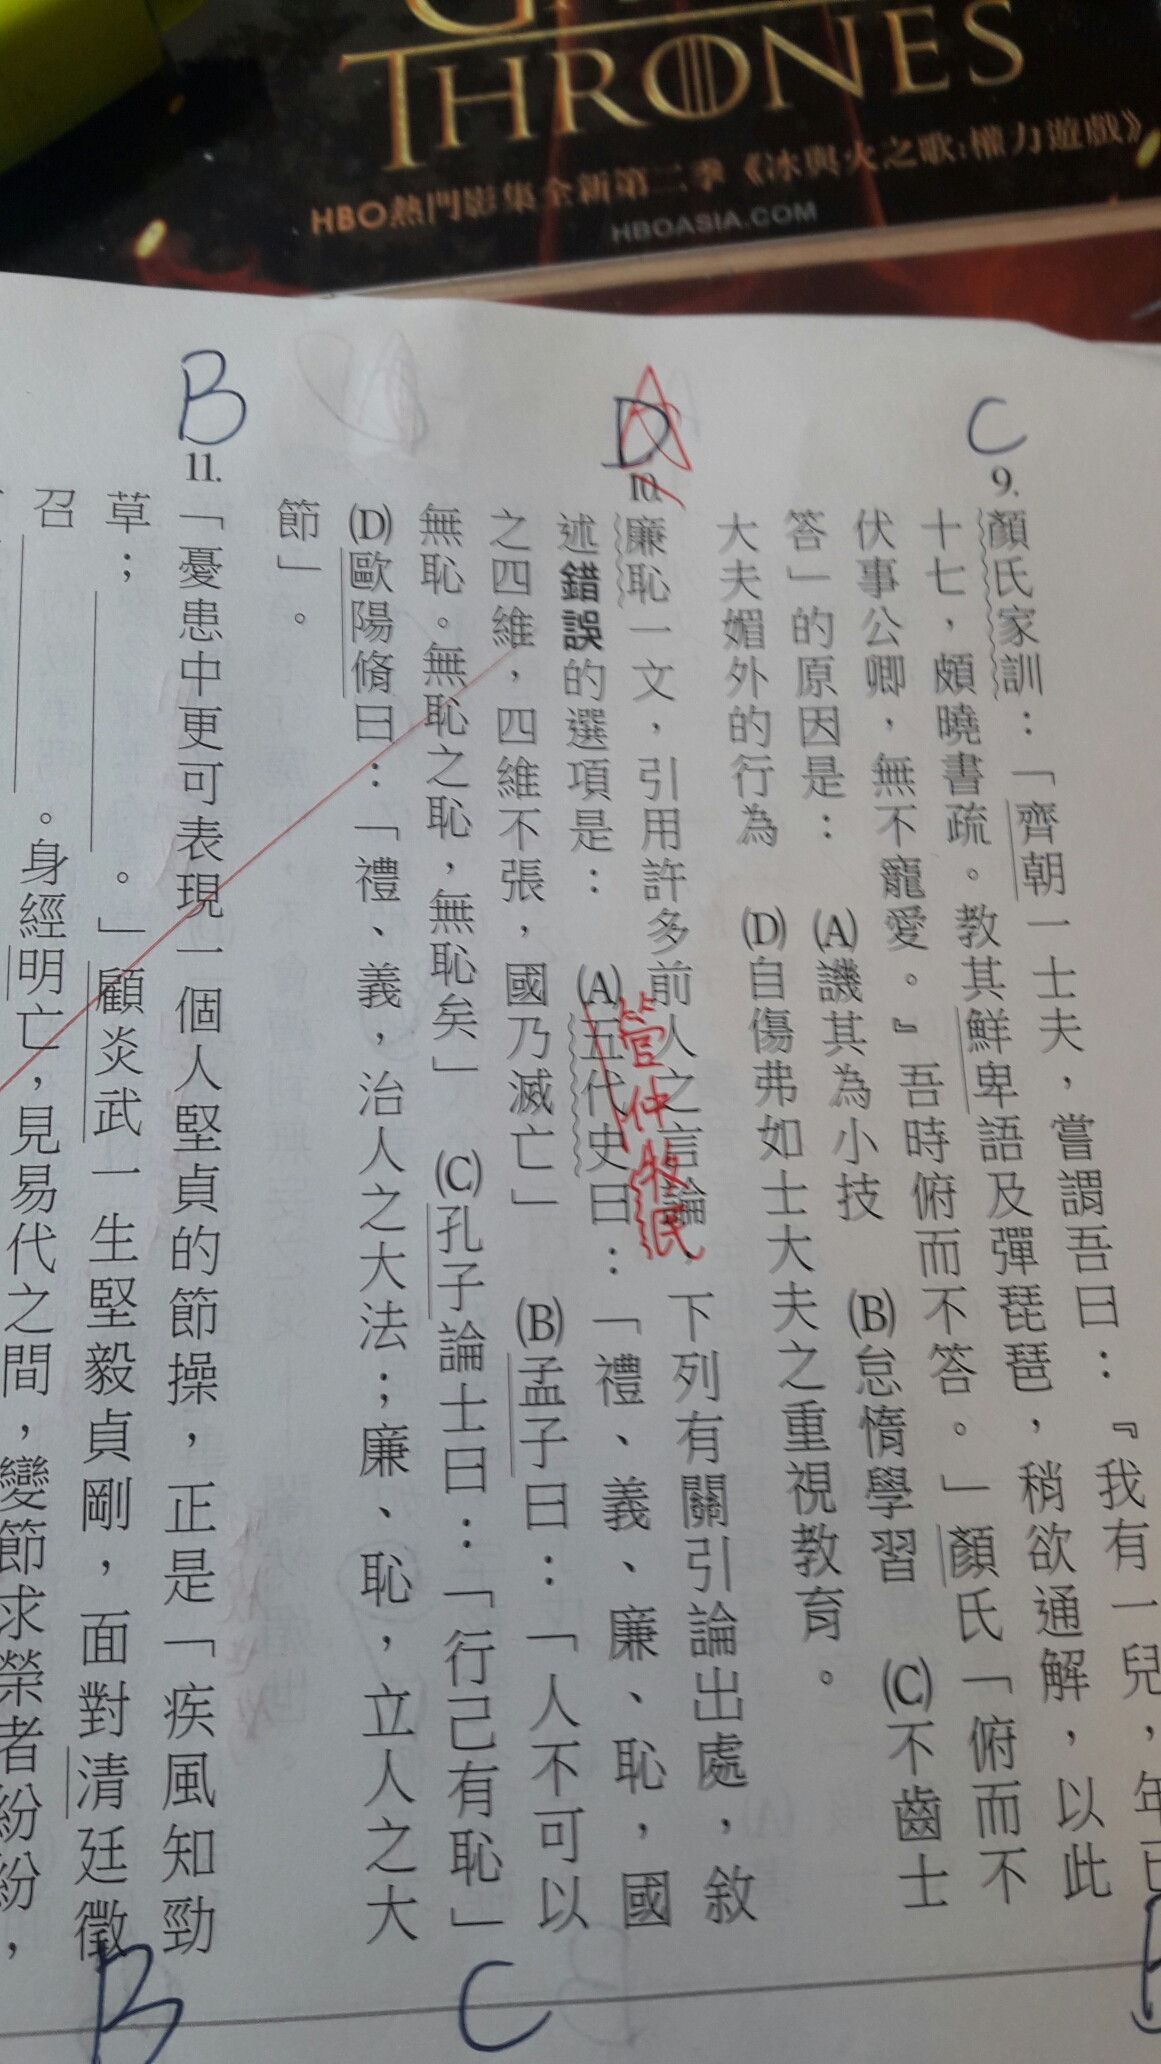 THRONES
HBO熱門影集全新第二季《冰與火之歌:權力遊戲》
HBOASIA.COM
C
9.
顏氏家訓：「齊朝一士夫，嘗謂吾曰：『我有一兒，年已
十七，頗曉書疏。教其鮮卑語及彈琵琶，稍欲通解，以此
伏事公卿，無不寵愛。』吾時俯而不答。」顏氏「俯而不
答」的原因是： (A)譏其為小技 (B)怠惰學習 (C)不齒士
大夫媚外的行為 (D)自傷弗如士大夫之重視教育。
D
A
10.
廉恥一文，引用許多前人之言論，下列有關引論出處，敘
述錯誤的選項是： (A)五代史曰：「禮、義、廉、恥，國
管仲牧民
之四維，四維不張，國乃滅亡」 (B)孟子曰：「人不可以
無恥。無恥之恥，無恥矣」 (C)孔子論士曰：「行己有恥」
(D)歐陽脩曰：「禮、義，治人之大法；廉、恥，立人之大
節」。
B
11.
「憂患中更可表現一個人堅貞的節操，正是「疾風知勁
草；　　　。」顧炎武一生堅毅貞剛，面對清廷徵
召　　　。身經明亡，見易代之間，變節求榮者紛紛，
B
C